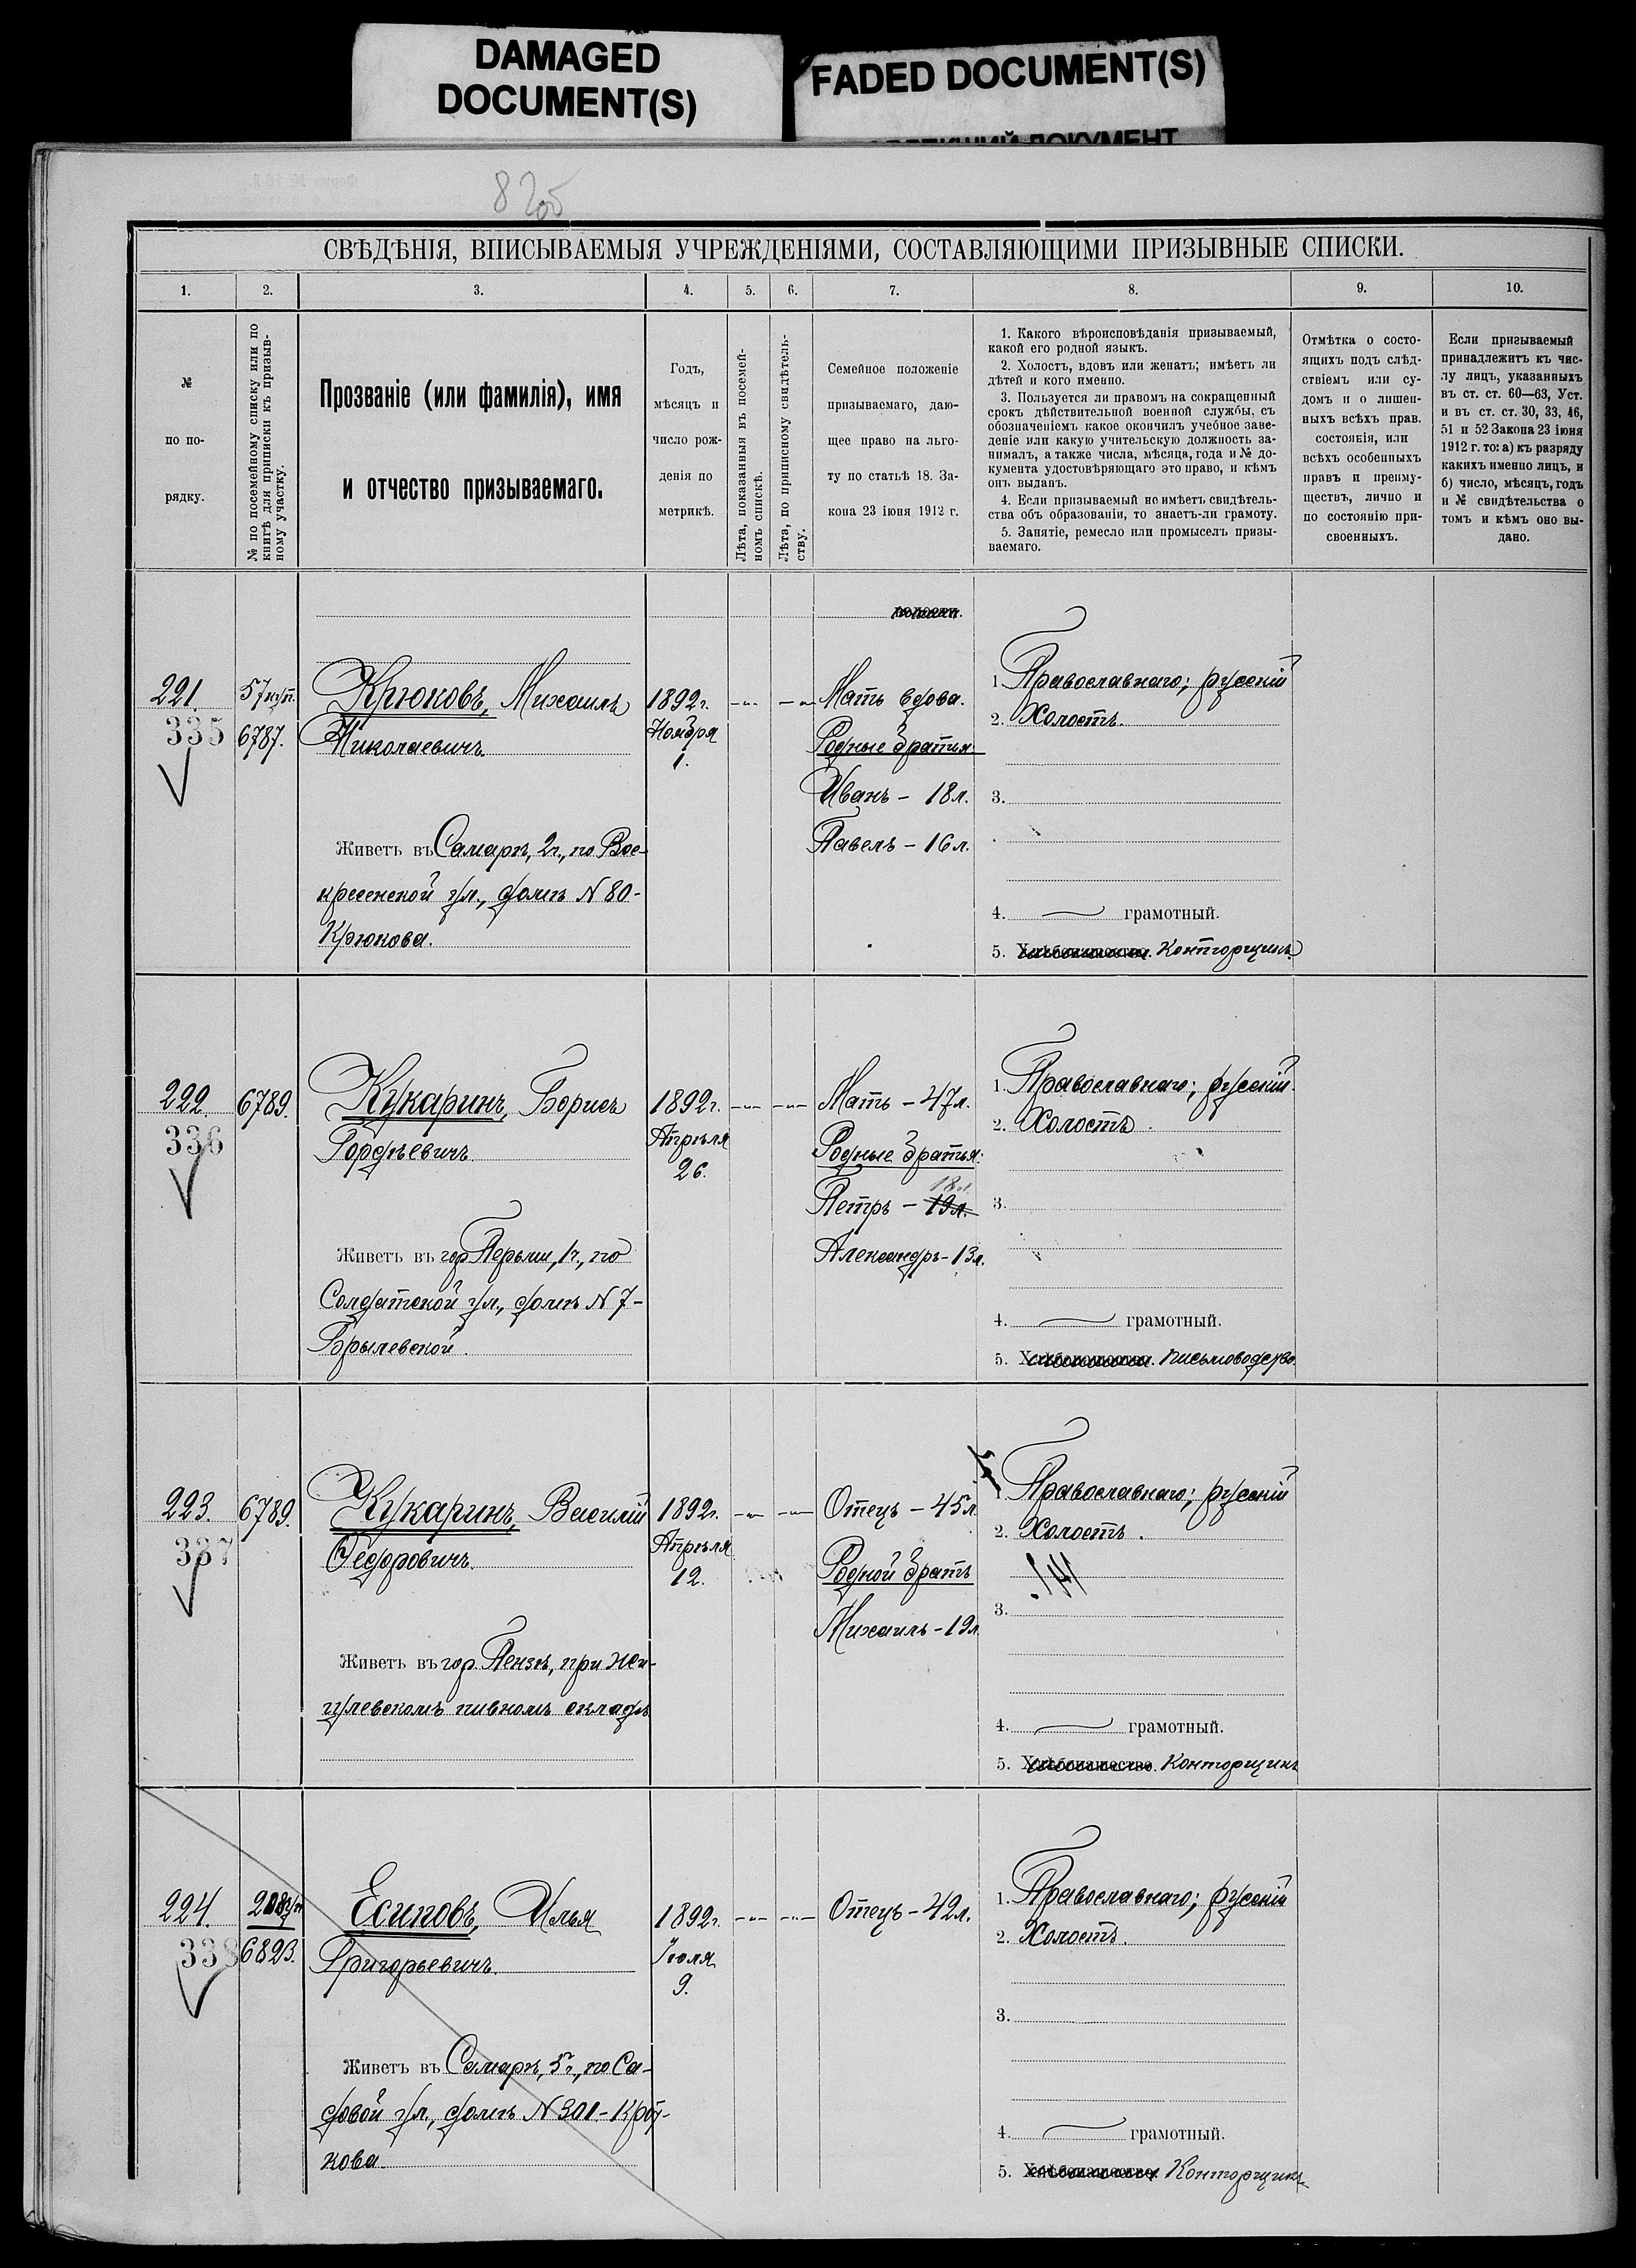 DAMAGED
DOCUMENT(S)
FADED DOCUMENT(S)
ДОКУМЕНТ
8
СВѢДѢНІЯ, ВПИСЫВАЕМЫЯ УЧРЕЖДЕНІЯМИ, СОСТАВЛЯЮЩИМИ ПРИЗЫВНЫЕ СПИСКИ.
1.
2.
3.
4.
5.
6.
7.
8.
9.
10.
№
по по-
рядку.
№ по посемейному списку или по
книгѣ для приписки къ призыв-
ному участку.
Прозваніе (или фамилія), имя
и отчество призываемаго.
Годъ,
мѣсяцъ и
число рож-
денія по
метрикѣ.
Лѣта, показанныя въ посемей-
номъ спискѣ.
Лѣта, по приписному свидѣтель-
ству.
Семейное положеніе
призываемаго, даю-
щее право на льго-
ту по статьѣ 18. За-
кона 23 іюня 1912 г.
1. Какого вѣроисповѣданія призываемый,
какой его родной языкъ.
2. Холостъ, вдовъ или женатъ; имѣетъ ли
дѣтей и кого именно.
3. Пользуется ли правомъ на сокращенный
срокъ дѣйствительной военной службы, съ
обозначеніемъ какое окончилъ учебное заве-
деніе или какую учительскую должность за-
нималъ, а также числа, мѣсяца, года и № до-
кумента удостовѣряющаго это право, и кѣмъ
онъ выданъ.
4. Если призываемый не имѣетъ свидѣтель-
ства объ образованіи, то знаетъ-ли грамоту.
5. Занятіе, ремесло или промыселъ призы-
ваемаго.
Отмѣтка о состо-
ящихъ подъ слѣд-
ствіемъ или су-
домъ и о лишен-
ныхъ всѣхъ прав.
состоянія, или
всѣхъ особенныхъ
правъ и преиму-
ществъ, лично и
по состоянію при-
своенныхъ.
Если призываемый
принадлежитъ къ чис-
лу лицъ, указанныхъ
въ ст. ст. 60—63, Уст.
и въ ст. ст. 30, 33, 46,
51 и 52 Закона 23 іюня
1912 г. то: а) къ разряду
какихъ именно лицъ, и
б) число, мѣсяцъ, годъ
и № свидѣтельства о
томъ и кѣмъ оно вы-
дано.
221.
335
57куп.
6787.
Крюковъ, Михаилъ
Николаевичъ
Живетъ въ Самарѣ, 2ч., по Вос-
кресенской ул., домъ N 80-
Крюкова.
1892г.
Ноября
1.
Мать вдова.
Родные братья
Иванъ - 18л.
Павелъ - 16л.
1. Православнаго; русскій
2. Холостъ.
3.
4. грамотный.
5. Хлѣбопашество. Конторщикъ
222.
336
6789.
Кукаринъ, Борисъ
Гордѣевичъ
Живетъ въ гор. Перми, 1ч., по
Солдатской ул., домъ N 7-
Брылевской.
1892г.
Апрѣля
26.
Мать - 47л.
Родные братья:
18л
Петръ - 19л.
Александръ - 13л.
1. Православнаго; русскій.
2. Холостъ.
3.
4. грамотный.
5. Хлѣбопашество. письмоводство.
223.
337
6789.
Кукаринъ, Василій
Ѳедоровичъ
Живетъ въ гор. Пензѣ, при Жи-
гулевскомъ пивномъ складѣ
1892г.
Апрѣля
12.
Отецъ - 45л.
Родной братъ
Михаилъ - 19л.
1. Православнаго; русскій
2. Холостъ.
3.
4. грамотный.
5. Хлѣбопашество. Конторщикъ
224.
338
6823.
Есиповъ, Илья
Григорьевичъ.
Живетъ въ Самарѣ, 5ч., по Са-
довой ул., домъ N 301-
кова.
1892г.
Іюля
9.
Отецъ - 42л.
1. Православнаго; русскій
2. Холостъ.
3.
4. грамотный.
5. Хлѣбопашество. Конторщикъ